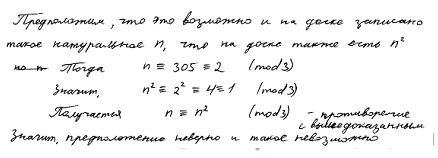 Предположим, что это возможно и на доске записано
такое натуральное n, что на доске также есть n²
Тогда n ≡ 305 ≡ 2 (mod 3)
Значит, n² ≡ 2² = 4 ≡ 1 (mod 3)
Получается n ≡ n² (mod 3) - противоречие
с вышедоказанным
Значит, предположение неверно и такое невозможно